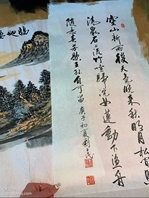 空山新雨後天氣晚來秋明月松間照
清泉石上流竹喧歸浣女蓮動下漁舟
随意春芳歇王孫自可留